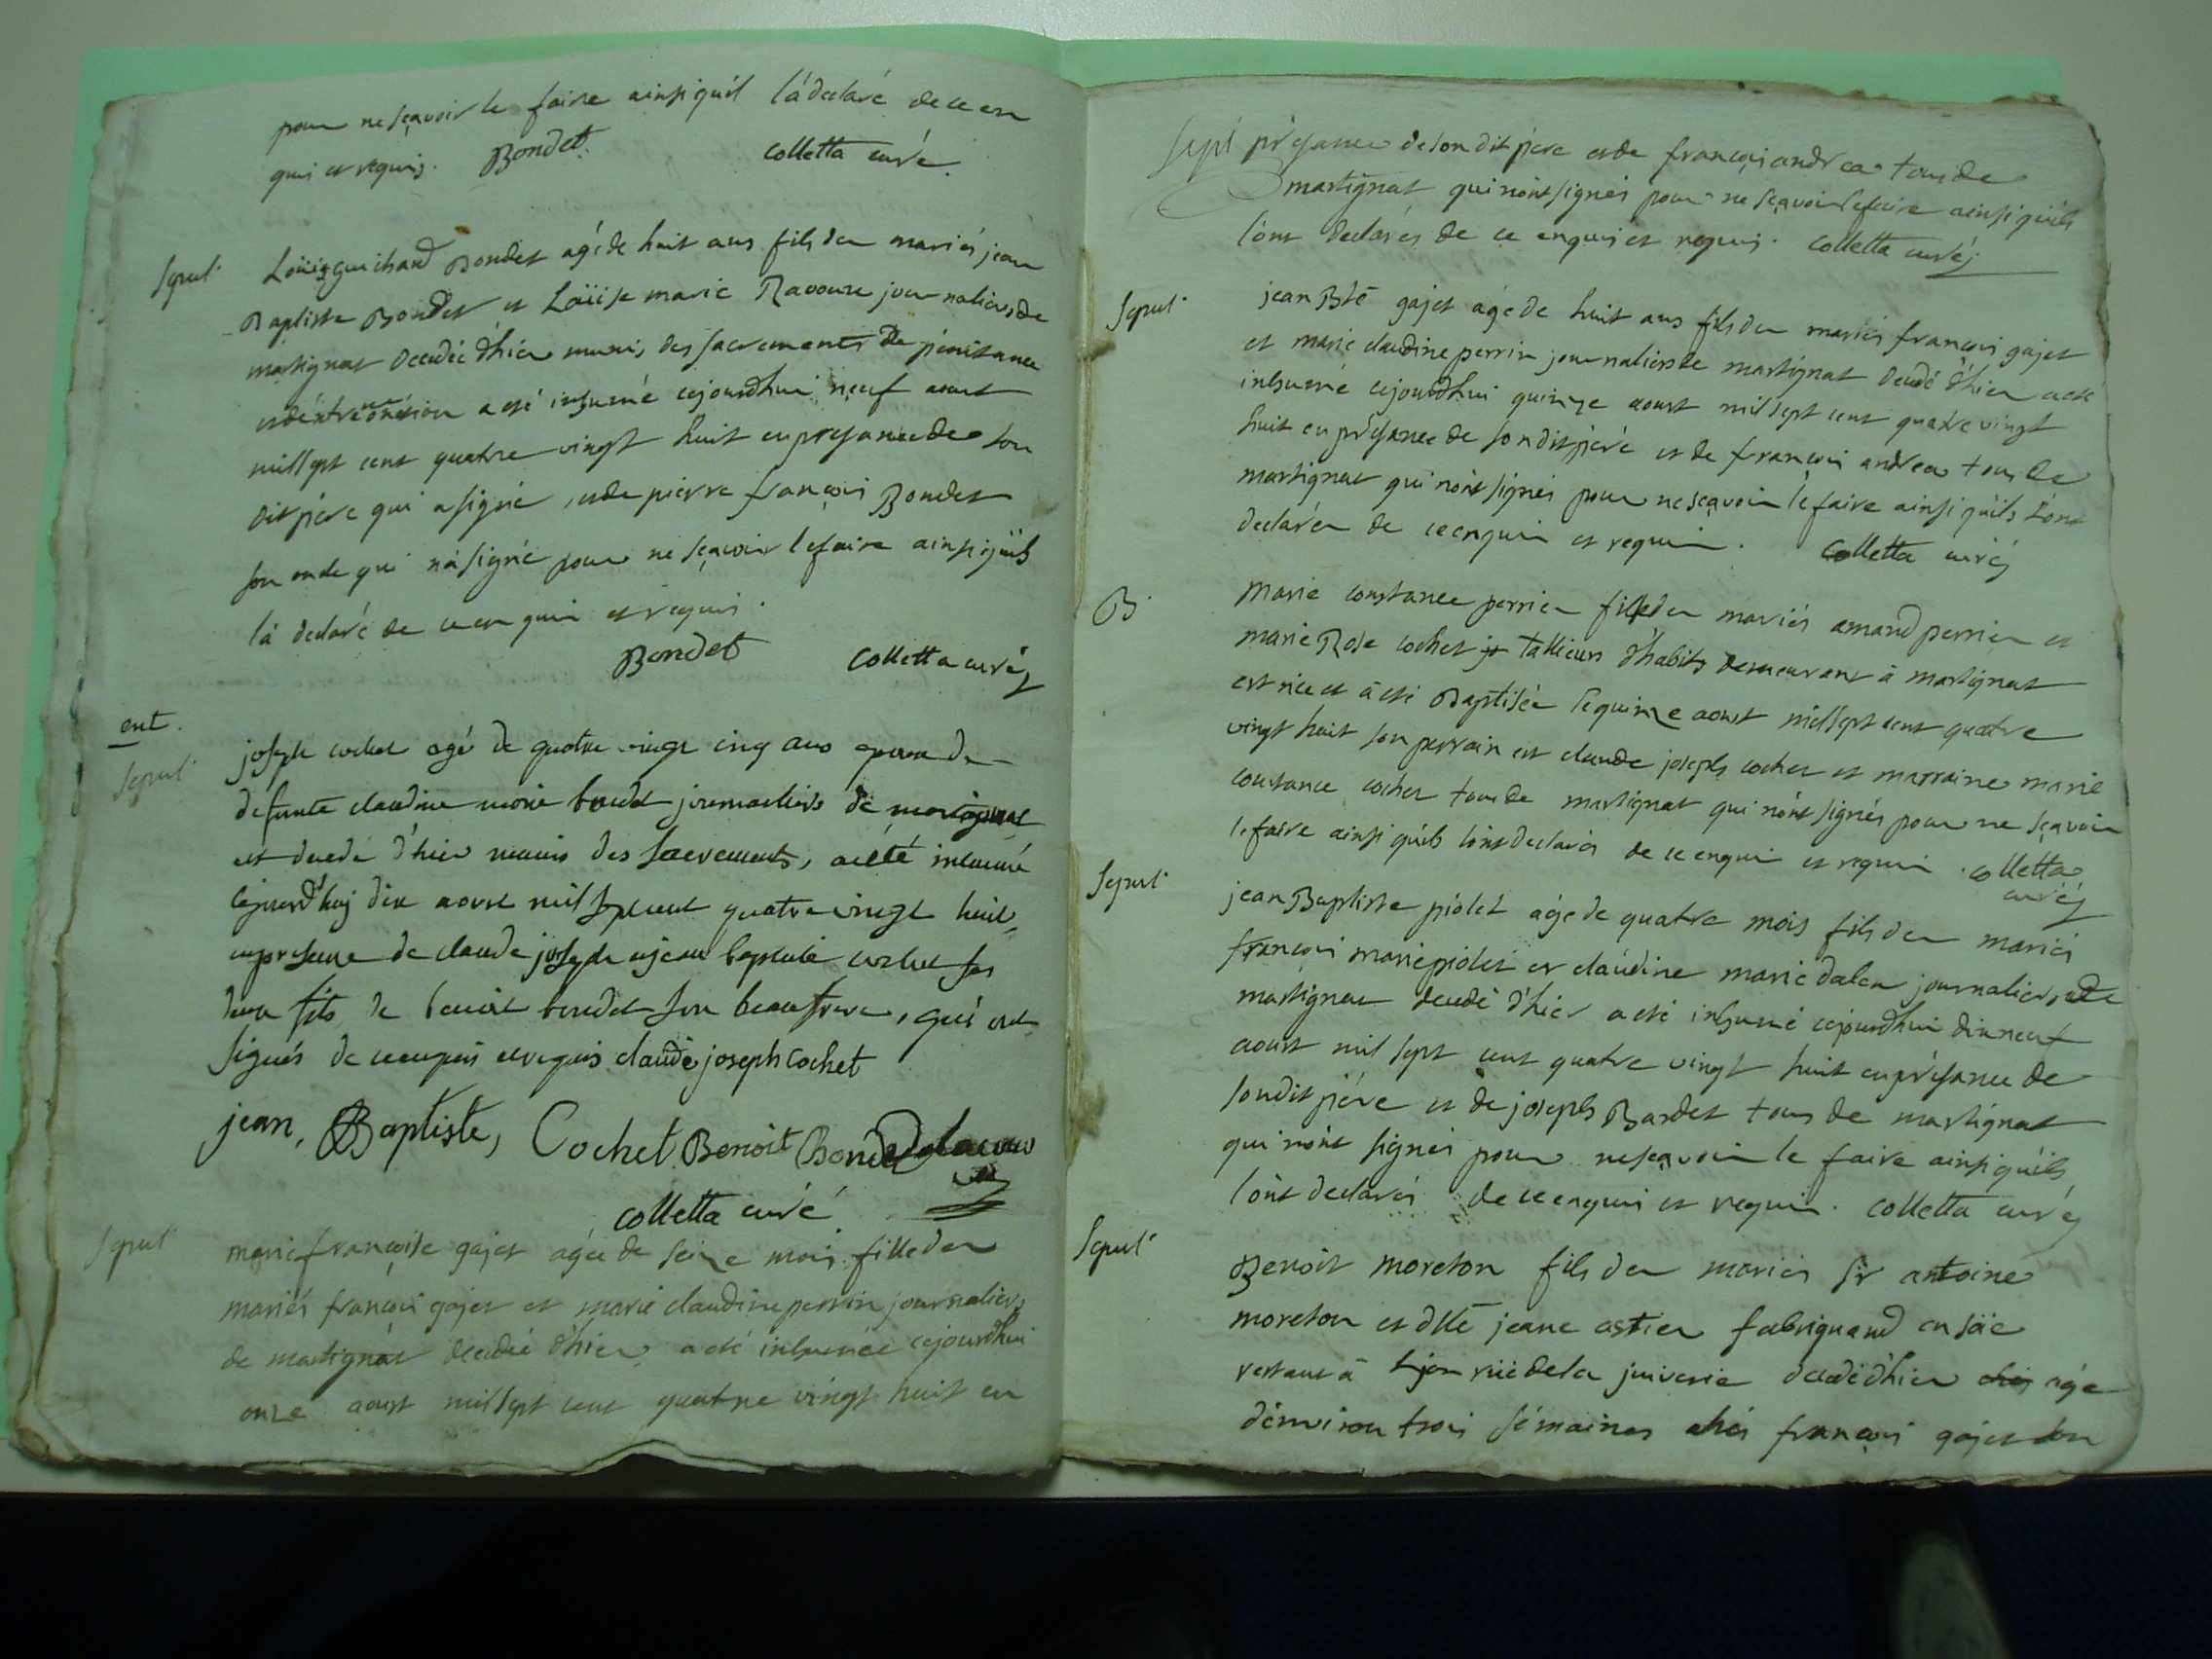 pour ne sçavoir le faire ainsi quil l'a declaré de ce en
quis et requis. Bondet. Colletta curé.
Sepul.
Loüis guichard Bondet agé de huit ans fils den mariés jean
Baptiste Bondet et Loüise marie Ravoure journaliers de
martignat decedée d'hier muni des sacrements de pénitance
et dextremonction a eté inhumé cejourdhui neuf aoust
mil sept cent quatre vingt huit en presance de son
dit pére qui a signé, et de pierre françois Bondet
son oncle qui n'a signé pour ne sçavoir le faire ainsi quils
l'a declaré de ce en quis et requis.
Bondet Colletta curé
ent.
Sepul.
joseph cochet agé de quatre vingt cinq ans epoux de
defunte claudine marie bondet journaliers de martignat
est decedé d'hier munis des sacrements, a eté inhumé
cejourd'huy dix aoust mil sept cent quatre vingt huit,
en presence de claude joseph et jean baptiste cochet ses
deux fils de benoit bondet son beaufrere, qui ont
signés de ce enquis et requis claude joseph Cochet
jean, Baptiste, Cochet Benoit Bondet
Colletta curé
Sepul
marie françoise gajet agée de seize mois fille den
mariés françois gajet et marie claudine perrin journaliers
de martignat decedée d'hier a eté inhumée cejourdhui
onze aoust mil sept cent quatre vingt huit en
Sepl présance de son dit pére et de françois andrea tous de
martignat qui n'ont signés pour ne sçavoir le faire ainsi quils
l'ont declarés de ce enquis et requis. Colletta curé
Sepul.
jean Bte gajet agé de huit ans fils den mariés françois gajet
et marie claudine perrin journaliers de martignat decedé d'hier a eté
inhumé cejourdhui quinze aoust mil sept cent quatre vingt
huit en présance de son dit pére et de françois andrea tous de
martignat qui n'ont signés pour ne sçavoir le faire ainsi quils l'ont
declarés de ce enquis et requis. Colletta curé
B.
Marie constance perrier fille den mariés amand perrier et
marie Rose cochet tallieurs d'habits demeurant à martignat
est née et à eté Baptisée le quinze aoust mil sept cent quatre
vingt huit son parrain est claude joseph cochet et marraine marie
constance cochet tous de martignat qui n'ont signés pour ne sçavoir
le faire ainsi quils l'ont declarés de ce enquis et requis. Colletta
curé
Sepul.
jean Baptiste piolet agé de quatre mois fils den mariés
françois marie piolet et claudine marie dalen journaliers de
martignat decedé d'hier a eté inhumé cejourdhui dix neuf
aoust mil sept cent quatre vingt huit en présance de
son dit pére et de joseph Bardet tous de martignat
qui n'ont signés pour ne sçavoir le faire ainsi quils
l'ont declarés de ce enquis et requis. Colletta curé
Sepul.
Benoit moreton fils den mariés sr antoine
moreton et dlle jeane astier fabriquand en soie
restant à Lyon rüe de la juiverie decedé d'hier agé
d'environ trois sémaines chés françois gajet son